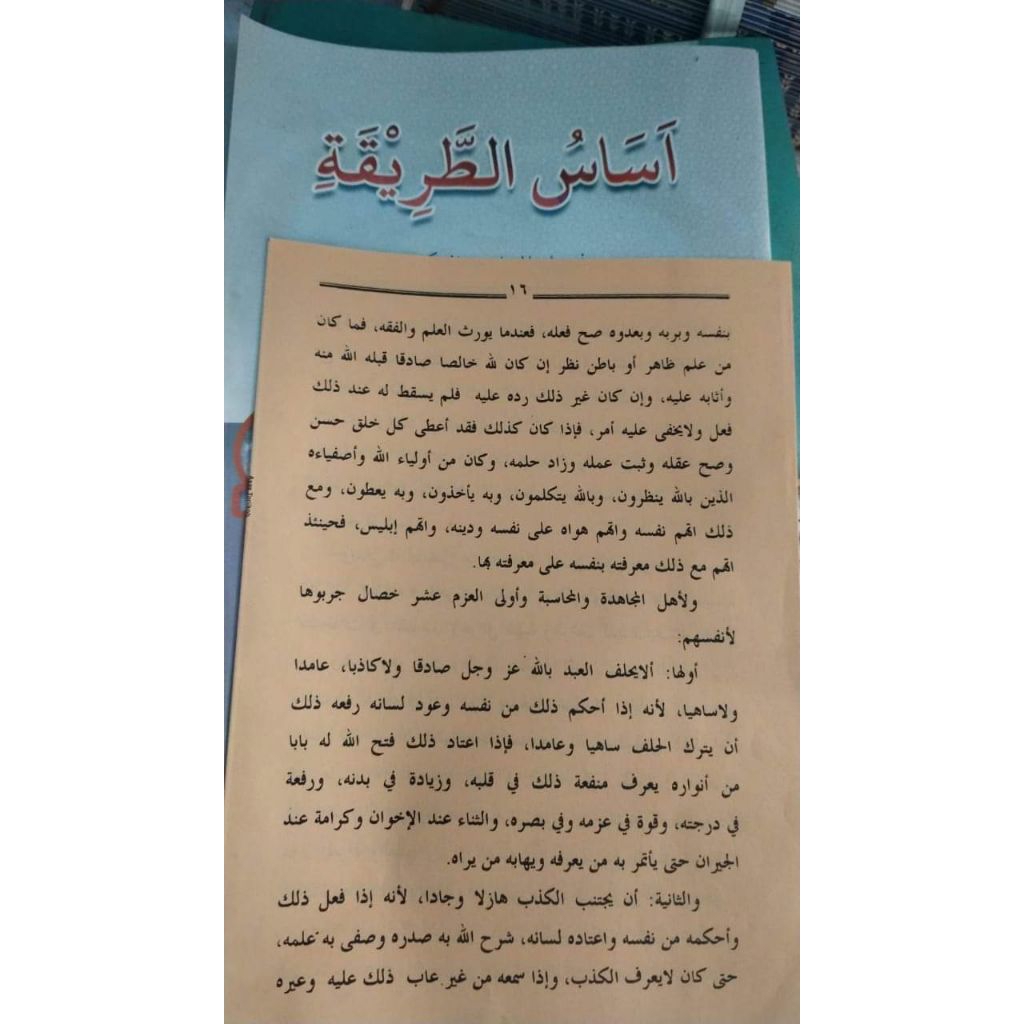 اَسَاسُ الطَّرِيْقَةِ
١٦
بنفسه وبربه وبعدوه صح فعله، فعندما يورث العلم والفقه، فما كان
من علم ظاهر أو باطن نظر إن كان لله خالصا صادقا قبله الله منه
وأثابه عليه، وإن كان غير ذلك رده عليه فلم يسقط له عند ذلك
فعل ولايخفى عليه أمر، فإذا كان كذلك فقد أعطى كل خلق حسن
وصح عقله وثبت عمله وزاد حلمه، وكان من أولياء الله وأصفياءه
الذين بالله ينظرون، وبالله يتكلمون، وبه يأخذون، وبه يعطون، ومع
ذلك اتهم نفسه واتهم هواه على نفسه ودينه، واتهم إبليس، فحينئذ
اتهم مع ذلك معرفته بنفسه على معرفته بها.
ولأهل المجاهدة والمحاسبة وأولى العزم عشر خصال جربوها
لأنفسهم:
أولها: ألايحلف العبد بالله عز وجل صادقا ولاكاذبا، عامدا
ولاساهيا، لأنه إذا أحكم ذلك من نفسه وعود لسانه رفعه ذلك
أن يترك الحلف ساهيا وعامدا، فإذا اعتاد ذلك فتح الله له بابا
من أنواره يعرف منفعة ذلك في قلبه، وزيادة في بدنه، ورفعة
في درجته، وقوة في عزمه وفي بصره، والثناء عند الإخوان وكرامة عند
الجيران حتى يأتمر به من يعرفه ويهابه من يراه.
والثانية: أن يجتنب الكذب هازلا وجادا، لأنه إذا فعل ذلك
وأحكمه من نفسه واعتاده لسانه، شرح الله به صدره وصفى به علمه،
حتى كان لايعرف الكذب، وإذا سمعه من غير عاب ذلك عليه وعيره